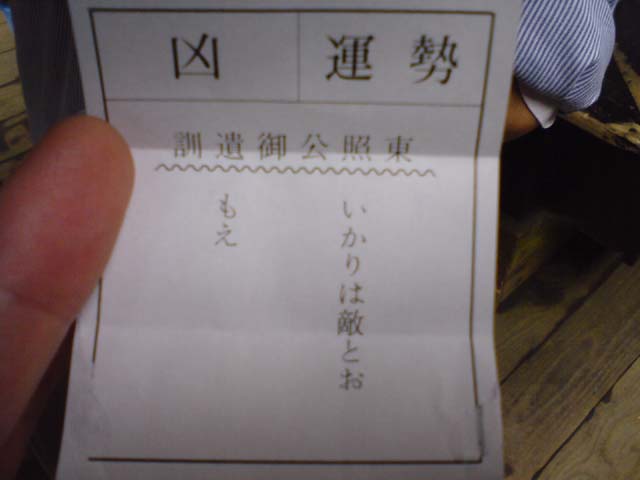 運勢
凶
東照公御遺訓
いかりは敵とお
もえ